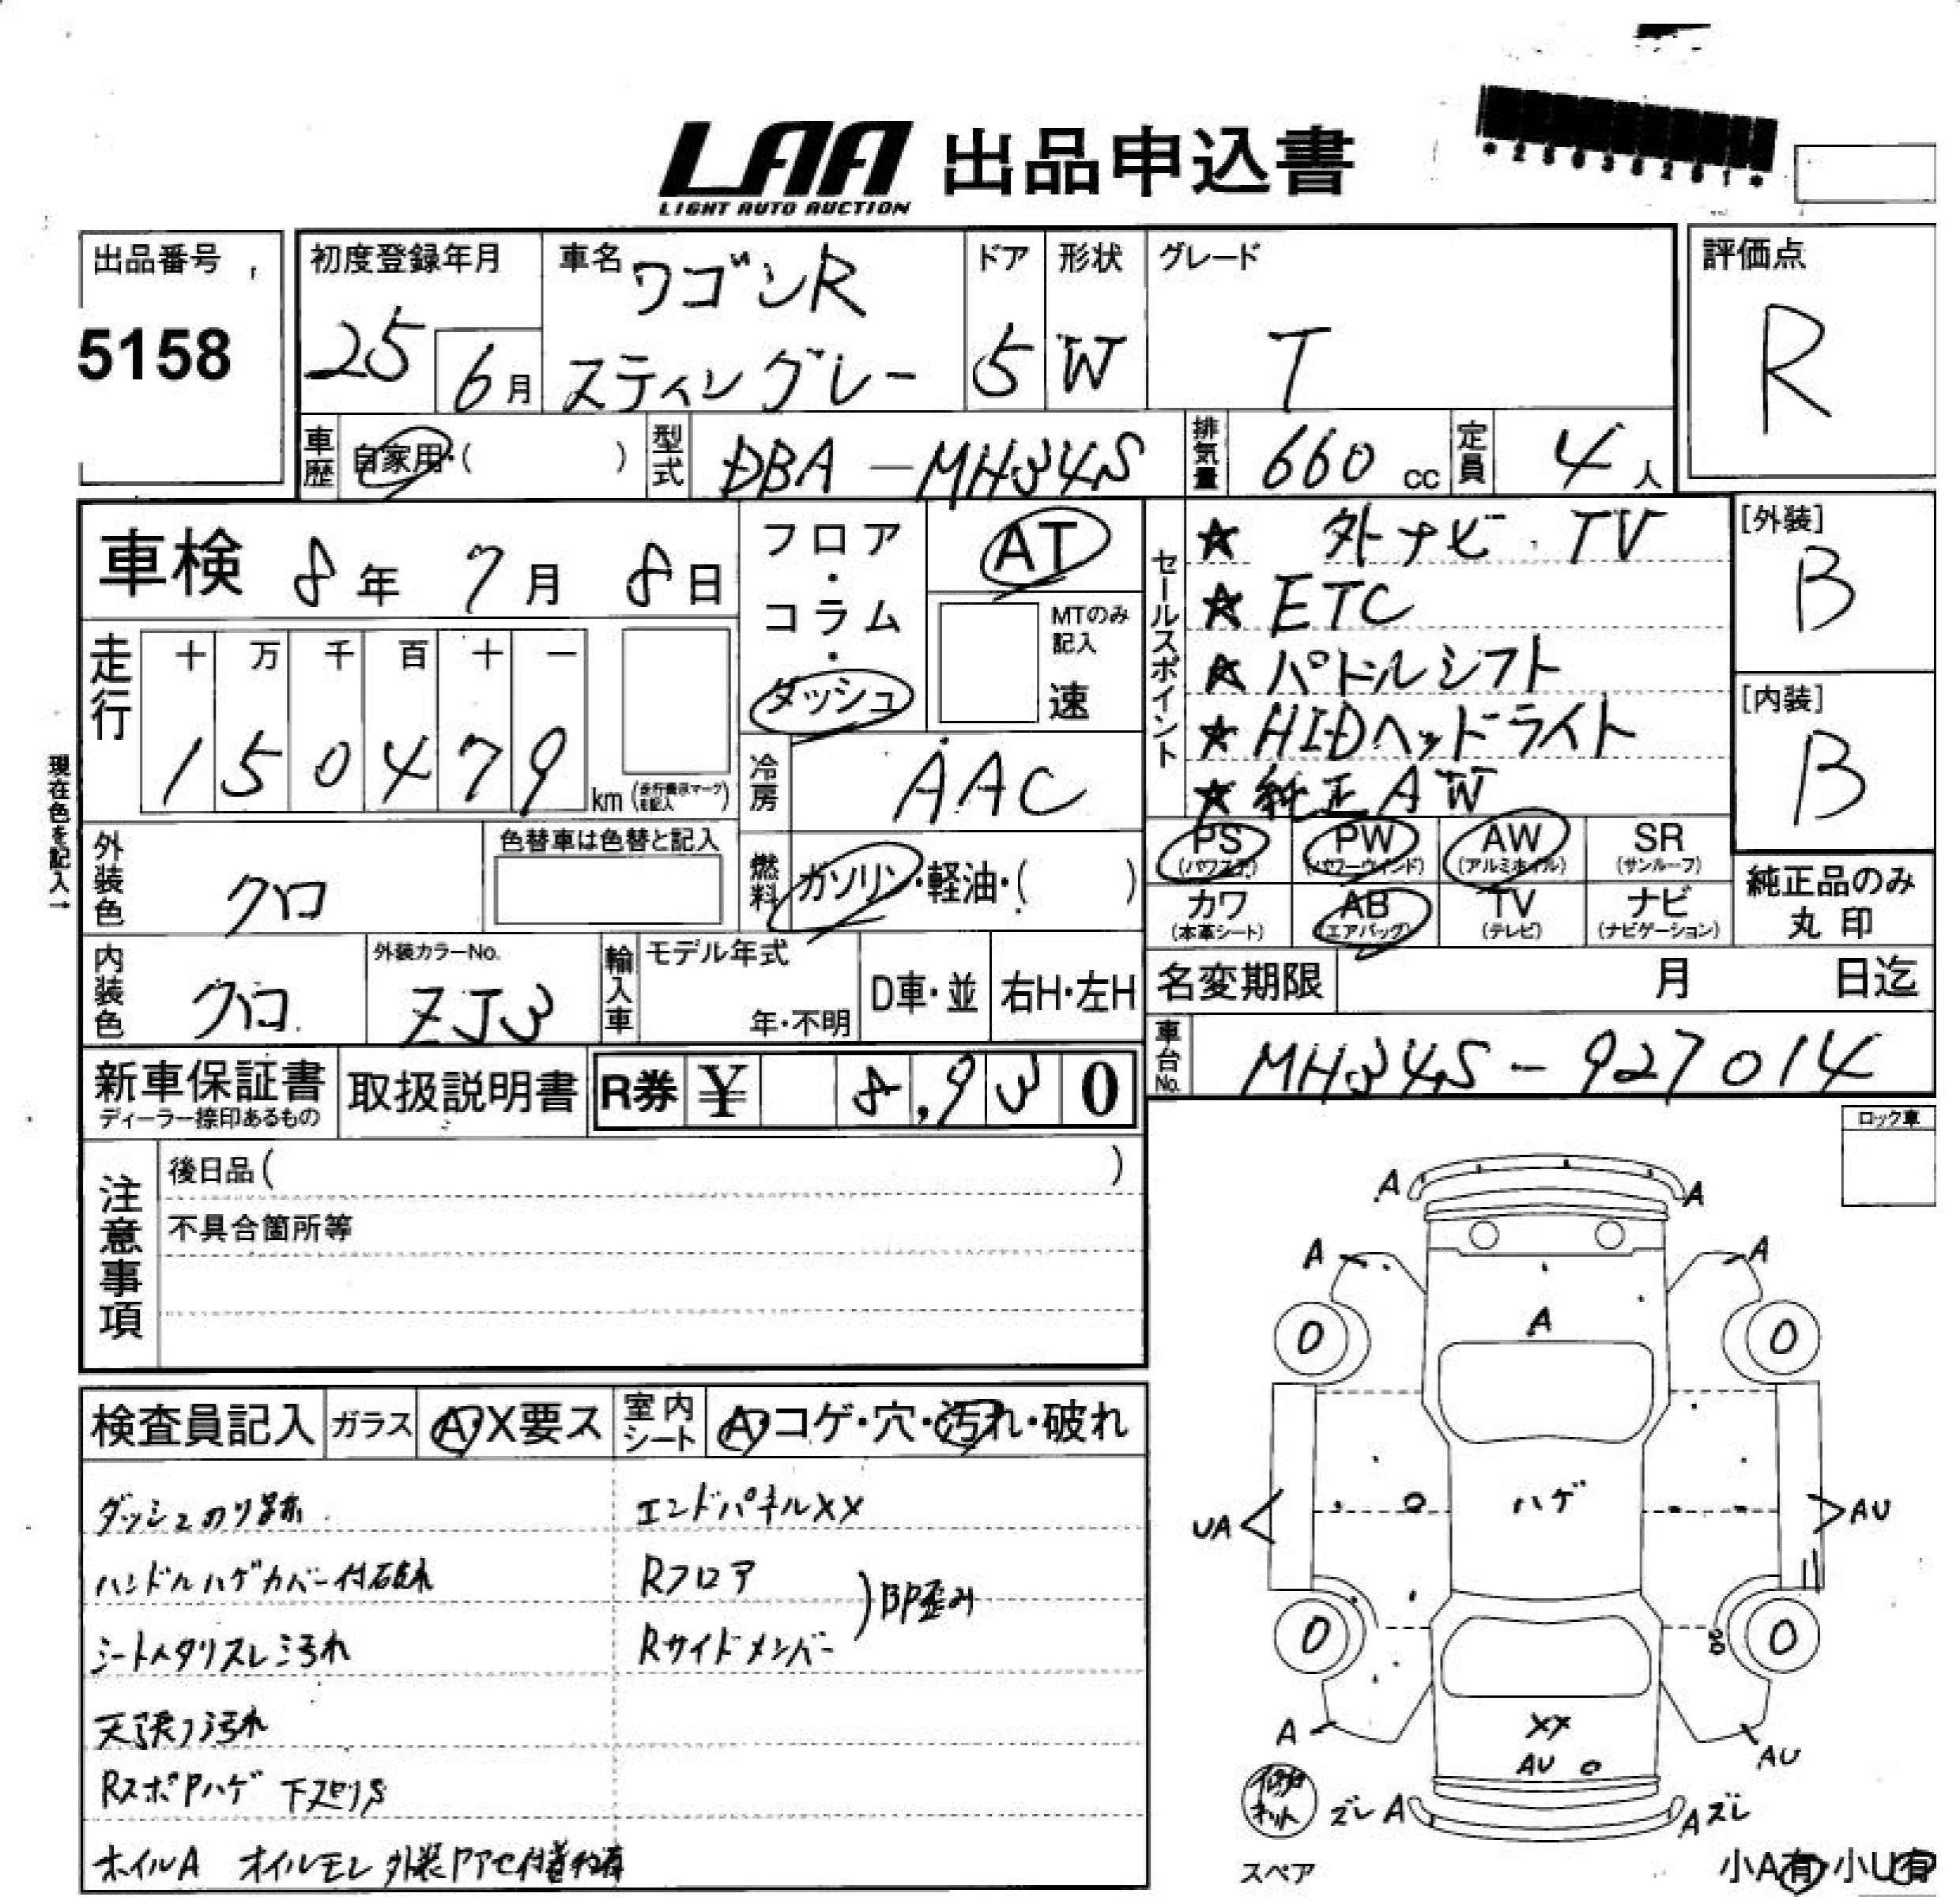 LAA 出品申込書
LIGHT AUTO AUCTION
出品番号
5158
初度登録年月
25
6月
車名
ワゴンR
スティングレー
ドア
5
形状
W
グレード
T
評価点
R
車歴
自家用・( )
型式
DBA-MH34S
排気量
660 cc
定員
4 人
車検 8年 7月 8日
フロア・コラム・ダッシュ
AT
MTのみ記入
速
セールスポイント
★ 外ナビ・TV
★ ETC
★ パドルシフト
★ HIDヘッドライト
★ 純正AW
[外装]
B
[内装]
B
走行
十 万 千 百 十 一
1 5 0 4 7 9 km
現在色を記入→
冷房
AAC
外装色
クロ
色替車は色替と記入
燃料
ガソリン・軽油・( )
PS (パワステ)
PW (パワーウインド)
AW (アルミホイル)
SR (サンルーフ)
カワ (本革シート)
AB (エアバッグ)
TV (テレビ)
ナビ (ナビゲーション)
純正品のみ丸印
内装色
クロ
外装カラーNo.
ZJ3
輸入車
モデル年式
年・不明
D車・並
右H・左H
名変期限 月 日迄
車台No.
MH34S-927014
新車保証書
ディーラー捺印あるもの
取扱説明書
R券 ¥ 8,930
ロック車
注意事項
後日品( )
不具合箇所等
検査員記入
ガラス
A・X要ス
室内シート
A・コゲ・穴・汚れ・破れ
ダッシュのり跡
エンドパネルXX
ハンドルハゲカバー付破れ
Rフロア
Rサイドメンバー
)BP歪み
シートヘタリスレ汚れ
天張り汚れ
RスポPハゲ 下スリキズ
ホイルA オイルモレ
A
A
A
A
A
0
0
ハゲ
UA
AU
0
0
XX
AU
A
AU
ズレ A
A ズレ
スペア
小A有・小U有